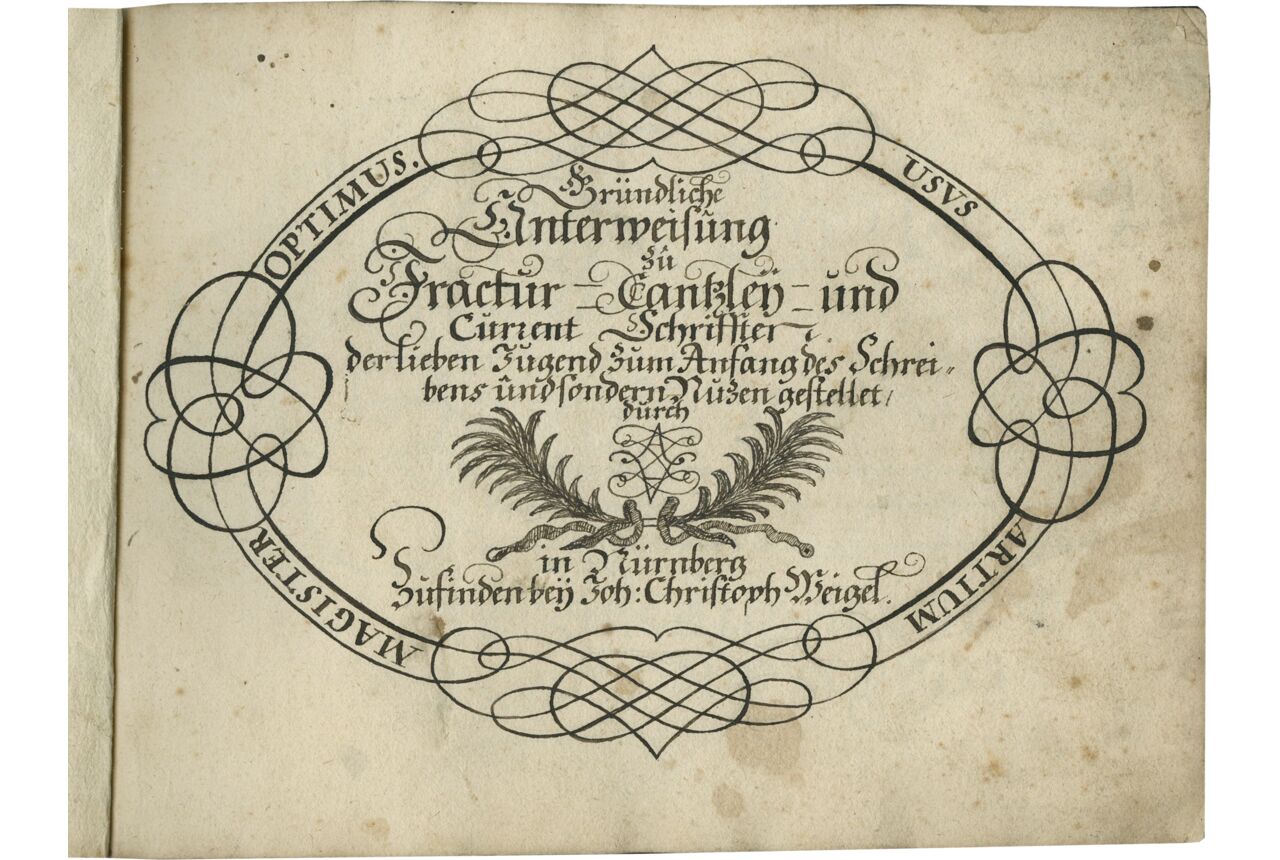 USVS
ARTIUM
MAGISTER
OPTIMUS.
Gründliche
Unterweisung
zu
Fractur - Cantzleÿ - und
Current Schrifften
der lieben Jugend zum Anfang des Schrei-
bens und sondern Nuzen gestellet/
durch
in Nürnberg
Zufinden beÿ Joh: Christoph Weigel.